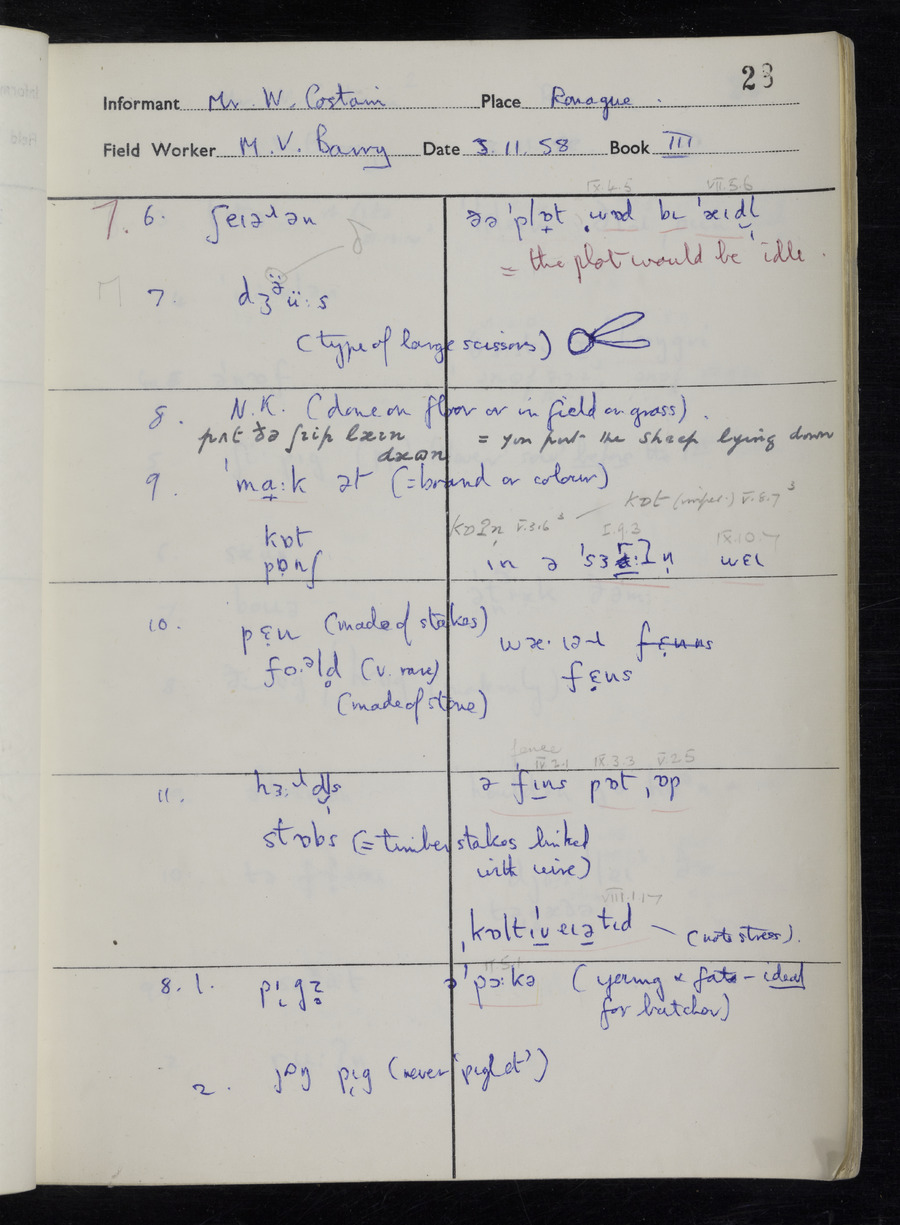 23
Informant Mr. W. Costain Place Ronague.
Field Worker M. V. Barry Date 5.11.58 Book III
IX.4.5 VII.5.6
7. 6. ʃeɪəɹən ðə ˈplɒt wʊd bɪ ˈæɪdl
= the plot would be idle.
7. dʒəü:s
(type of large scissors)
8. N.K. (done on floor or in field on grass).
pʌt ðə ʃɪip læɪn = you put the sheep lying down
dæʊn
9. ˈma:k ət (= brand or colour)
V.3.6 kɒt (imper.) V.8.7
kɒt I.9.3 IX.10.7
pɒnʃ ɪn ə wɛɪ
10. pɛn (made of stakes)
fo.əld (v. rare) fɛns
(made of stone)
fence
IV.2.1 IX.3.3 V.2.5
11. hɜ:ɹdl̩s ə fɪns pɒt ˌɒp
stɒbs (= timber stakes linked
with wire)
VIII.1.17
ˌkɒltɪˈveɪətɪd (note stress).
8. 1. pɪgz əˈpɔ:kə (young & fat – ideal
for butcher)
2. jɒŋ pɪg (never 'piglet')